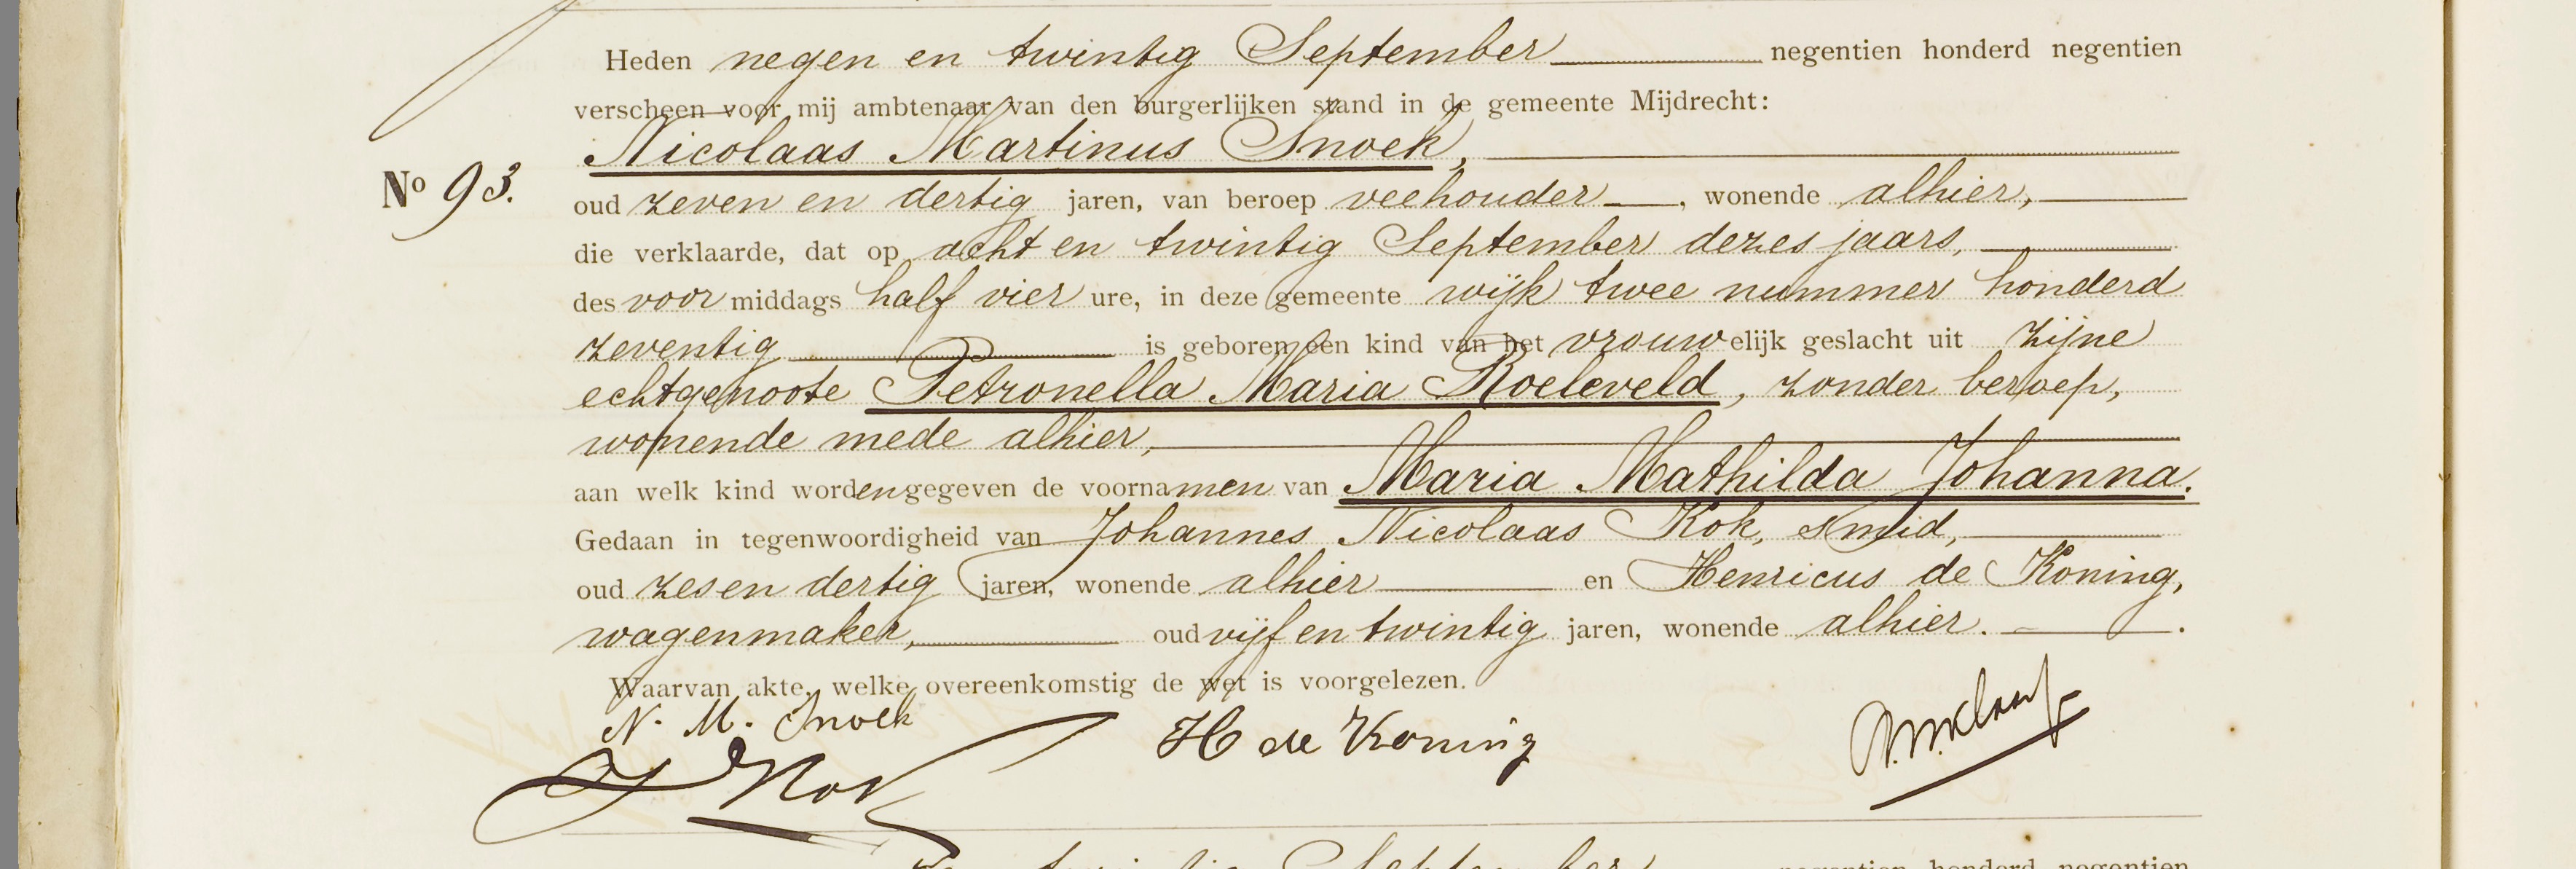 Heden negen en twintig September negentien honderd negentien
verscheen voor mij ambtenaar van den burgerlijken stand in de gemeente Mijdrecht:
Nicolaas Martinus Snoek,
No 93.
oud zeven en dertig jaren, van beroep veehouder, wonende alhier,
die verklaarde, dat op acht en twintig September dezes jaars,
des voor middags half vier ure, in deze gemeente wijk twee nummer honderd
zeventig is geboren een kind van het vrouwelijk geslacht uit zijne
echtgenoote Petronella Maria Roeleveld, zonder beroep,
wonende mede alhier,
aan welk kind worden gegeven de voornamen van Maria Mathilda Johanna.
Gedaan in tegenwoordigheid van Johannes Nicolaas Kok, smid,
oud zes en dertig jaren, wonende alhier en Henricus de Koning,
wagenmaker, oud vijf en twintig jaren, wonende alhier.
Waarvan akte, welke overeenkomstig de wet is voorgelezen.
N. M. Snoek
H de Koning
Kok